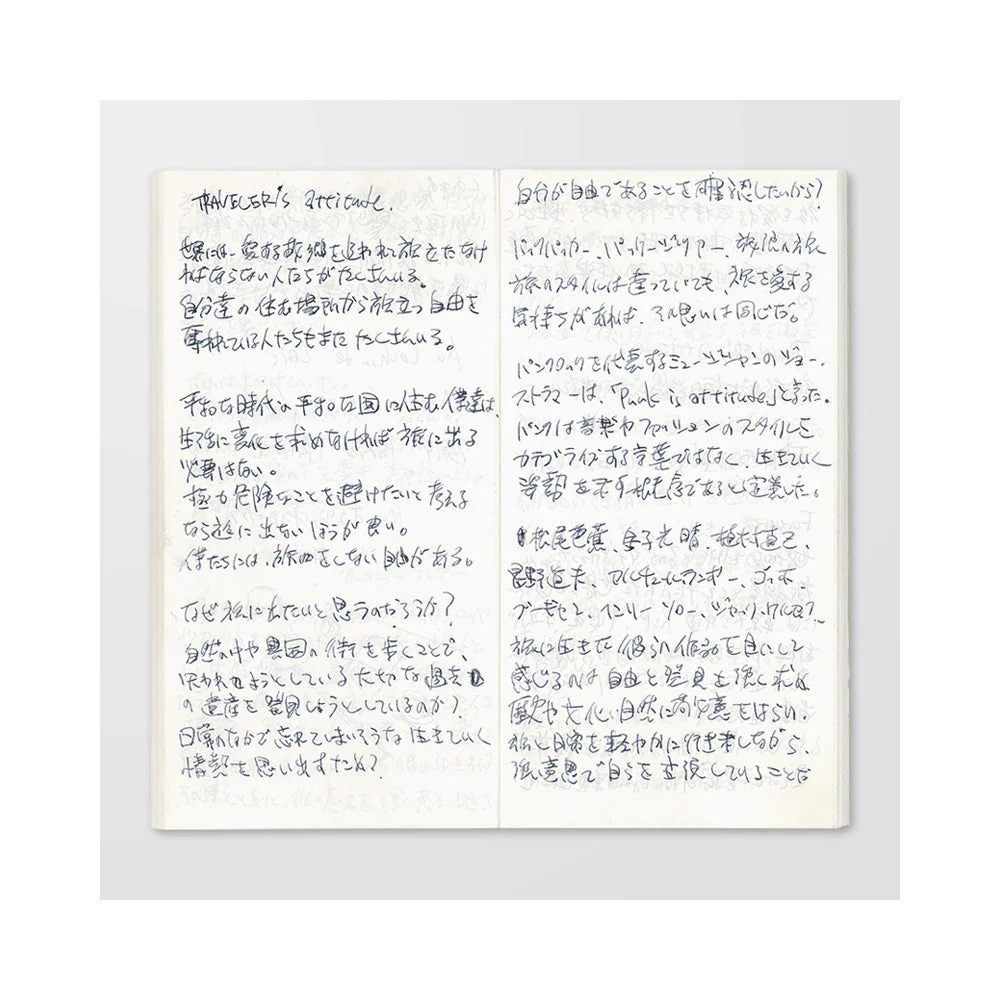 TRAVELER's attitude.
世界には、愛する故郷を追われて旅立たなけ
ればならない人たちがたくさんいる。
自分達の住む場所から旅立つ自由を
奪われている人たちもまたたくさんいる。
平和な時代の平和な国に住む僕達は、
生活に変化を求めなければ旅に出る
必要はない。
極力危険なことを避けたいと考える
なら旅に出ないほうが良い。
僕たちには、旅をしない自由がある。
なぜ旅に出たいと思うのだろうか？
自然の中や異国の街を歩くことで、
失われようとしている大切な過去
の遺産を発見しようとしているのか？
日常のなかで忘れてしまいそうな生きていく
情熱を思い出すため？
自分が自由であることを確認したいから？
バックパッカー、バッケージツアー、放浪の旅
旅のスタイルは違っていても、旅を愛する
気持ちがあれば、その思いは同じだ。
パンクロックを代表するミュージシャンのジョー・
ストラマーは、「Punk is attitude」と言った。
パンクは音楽やファッションのスタイルを
カテゴライズする言葉ではなく、生きていく
姿勢を示す言葉であると定義した。
松尾芭蕉、金子光晴、植村直己、
星野道夫、アルチュールランボー、ゴッホ、
ブーゼセン、ヘンリーソロー、ジャックケルアック、
旅に生きた彼らの作品を目にして
感じるのは自由と発見を強く求め
歴史や文化、自然に敬意をはらい、
旅と日常を軽やかに行き来しながら、
強い意思で自らを主張していることだ